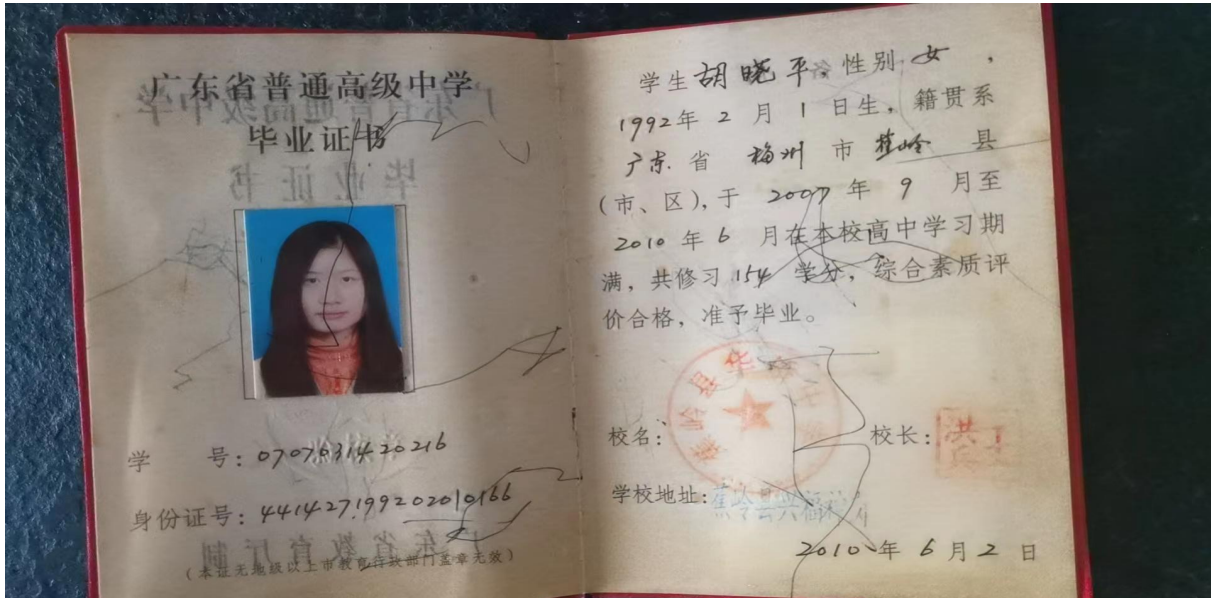 广东省普通高级中学
毕业证书
学 号：0707631420216
身份证号：441427199202010166
（本证无地级以上市教育行政部门盖章无效）
学生胡晓平，性别 女 ，
1992年 2 月 1 日生，籍贯系
广东 省 梅州 市 蕉岭 县
（市、区），于 2007 年 9 月至
2010 年 6 月在本校高中学习期
满，共修习 154 学分，综合素质评
价合格，准予毕业。
校名：
蕉岭县华
校长：
洪
学校地址：蕉岭县兴福
2010 年 6 月 2 日